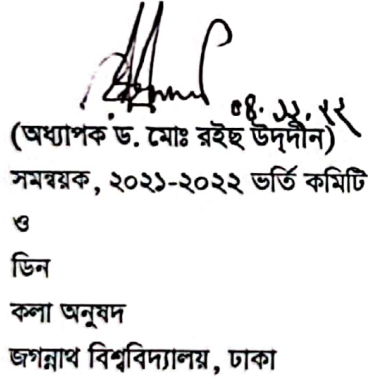 ০৪.১১.২২
(অধ্যাপক ড. মোঃ রইছ উদ্‌দীন)
সমন্বয়ক, ২০২১-২০২২ ভর্তি কমিটি
ও
ডিন
কলা অনুষদ
জগন্নাথ বিশ্ববিদ্যালয়, ঢাকা